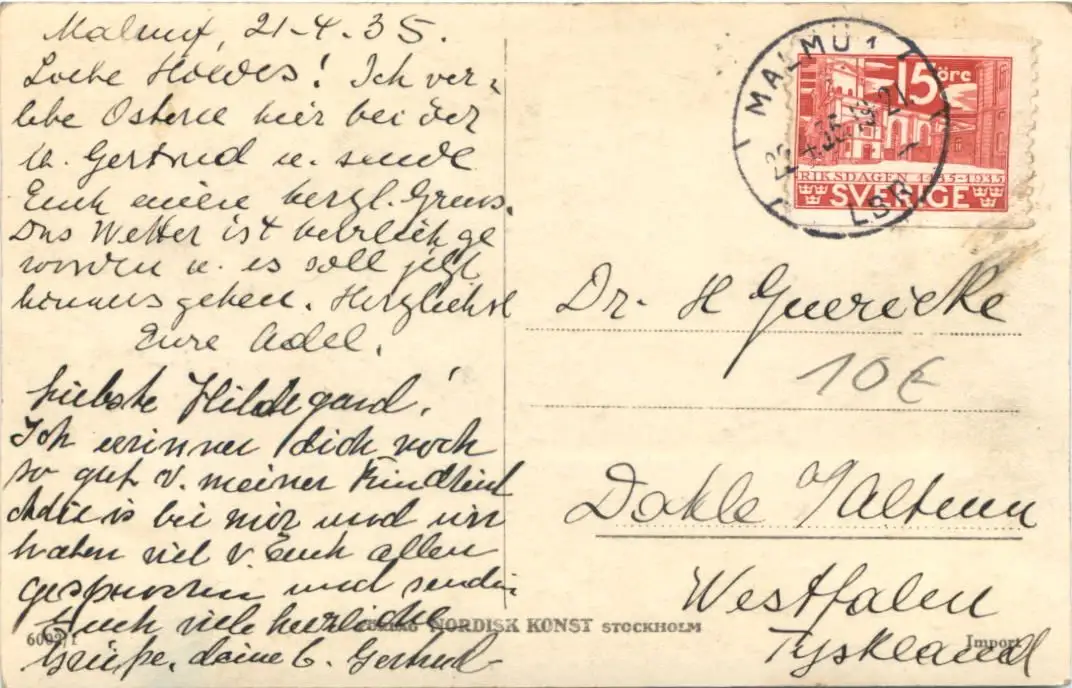 Malmö, 21-4.35.
Ich ver-
lebe Ostern hier bei der
Gertrud u. sende
Euch einen herzl. Gruss.
Das Wetter ist herrlich ge
worden u. es soll jetzt
hinaus gehen. Herzlichst
Eure Adel.
Liebste Hildegard!
Ich erinner dich noch
so gut v. meiner Kindheit
bei mir und wir
haben viel v. Euch allen
gesprochen und senden
Euch viele herzliche
Grüße, deine Gertrud
6002/1
NORDISK KONST STOCKHOLM
Import
MALMÖ 1
LBR
15 öre
RIKSDAGEN 1435-1935
SVERIGE
Dr. H Guericke
10€
Westfalen
Tyskland